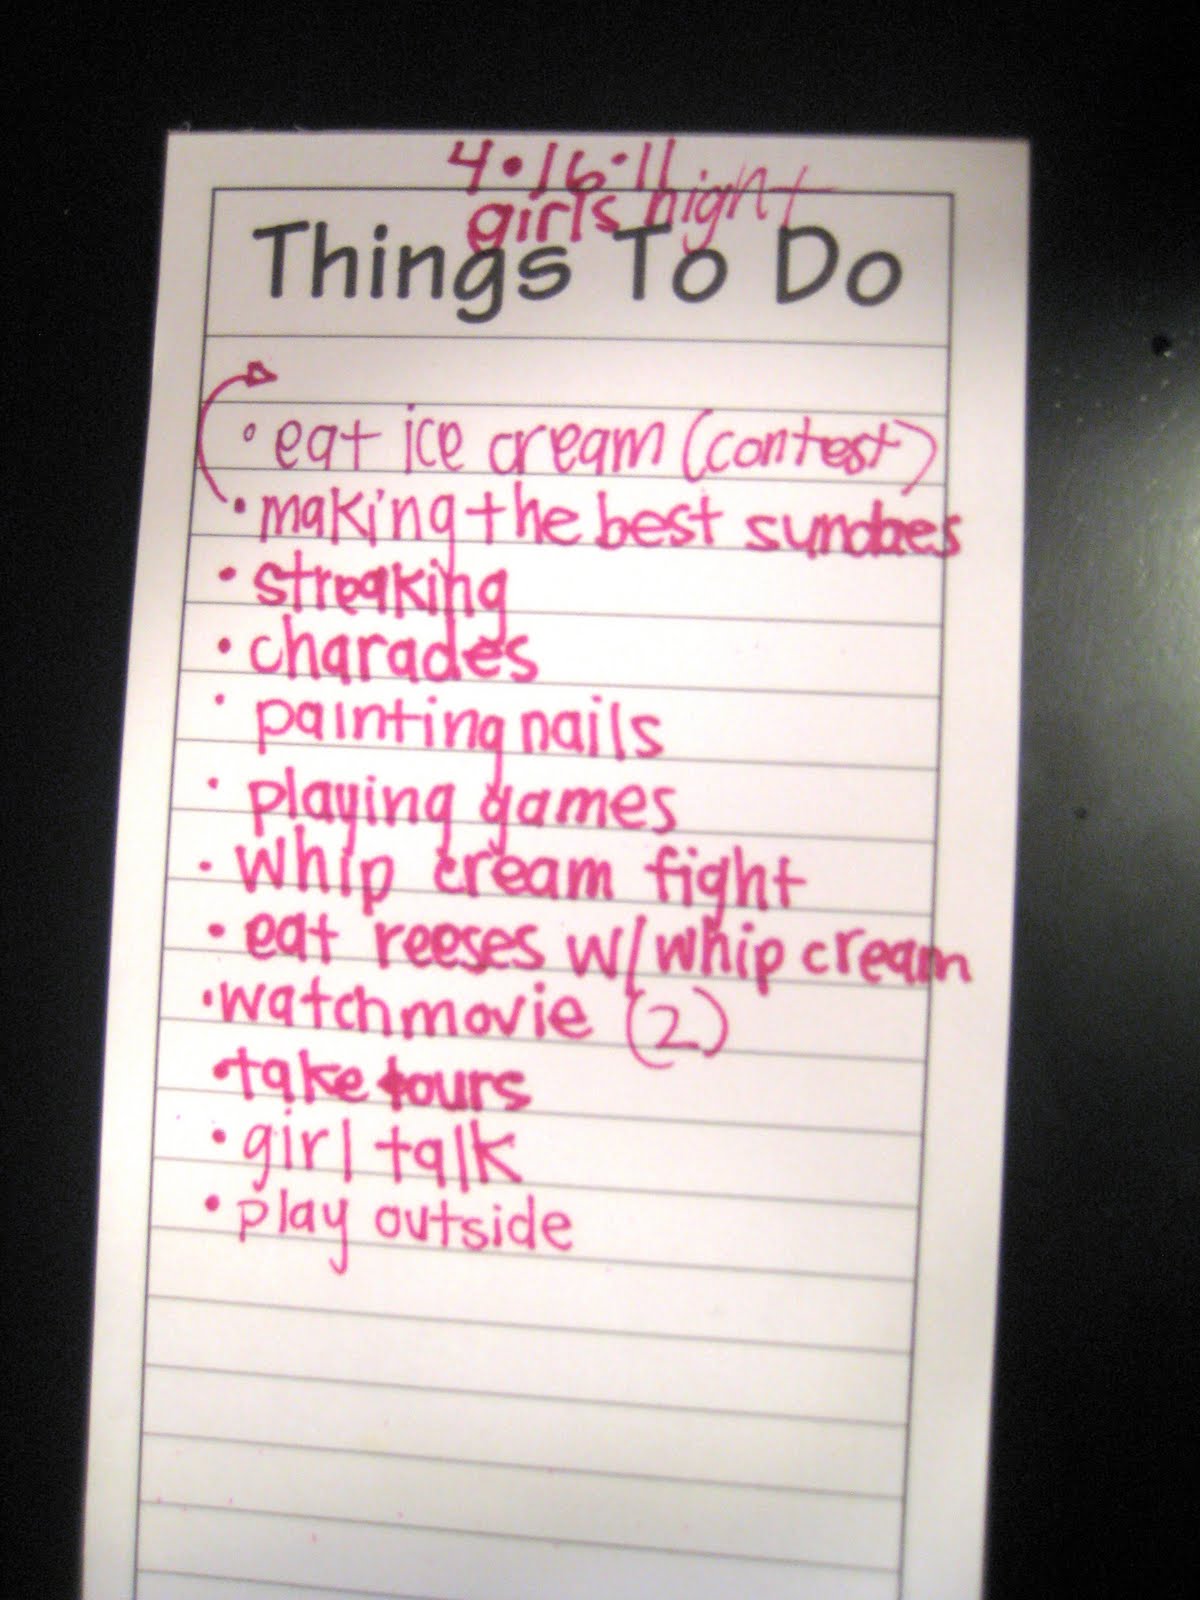 4•16•11
girls night
Things To Do
• eat ice cream (contest)
• making the best sundaes
• streaking
• charades
• painting nails
• playing games
• whip cream fight
• eat reeses w/ whip cream
• watch movie (2)
• take tours
• girl talk
• play outside